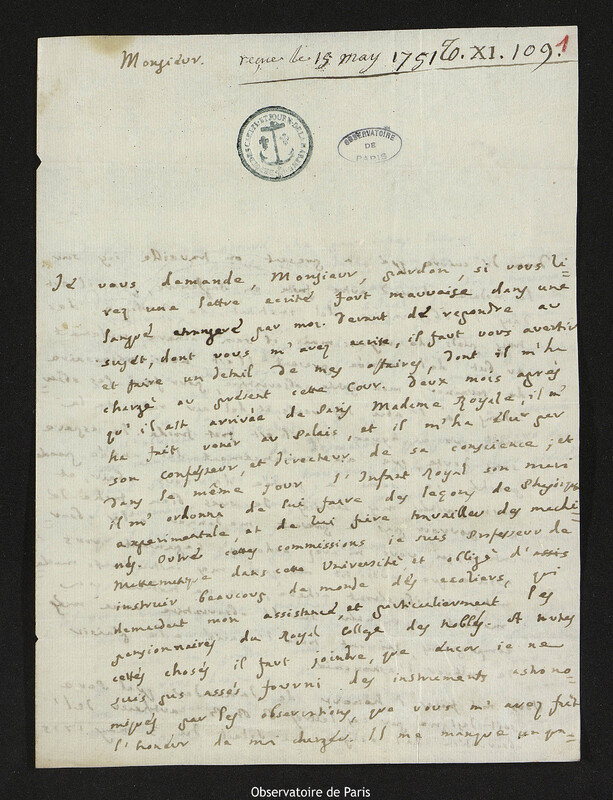 Monsieur. reçue le 15 may 1751 T. XI. 109. 1
OBSERVATOIRE
DE
PARIS
Je vous demande, Monsieur, pardon, si vous li-
rez une lettre ecrite fort mauvaise dans une
langue etrangere par moi. Devant de repondre au
sujét, dont vous m'avez ecrise, il faut vous avertir
et faire un detail de mes affaires, dont il m'ha
chargé au présent cette Cour. Deux mois apres
qu'il ast arrivée de Paris Madame Royale, il m'
ha fait venir au Palais, et il m'ha élui par
son Confesseur, et directeur de sa conscience; et
dans le même jour l'Infant Royal son mari
il m'ordonna de lui faire des leçons de Phÿsique
experimentale, et de lui faire travailler des machi-
nes. Outre cettes commissions je suis Professeur de
Mattematique dans cette Université et obligé d'assis
instruir beaucoup de monde dés ecoliers, qui
demandent mon assistance, et particulierment les
pensionnaires du Royal College des Nobles. A toutes
cettés chosés il faut joindre, que ancor je ne
suis pas assés fourni des instruments astrono-
miqués par les observations, que vous m'avez fait
l'honeur de me charger. Il me manque un qa-
Observatoire de Paris